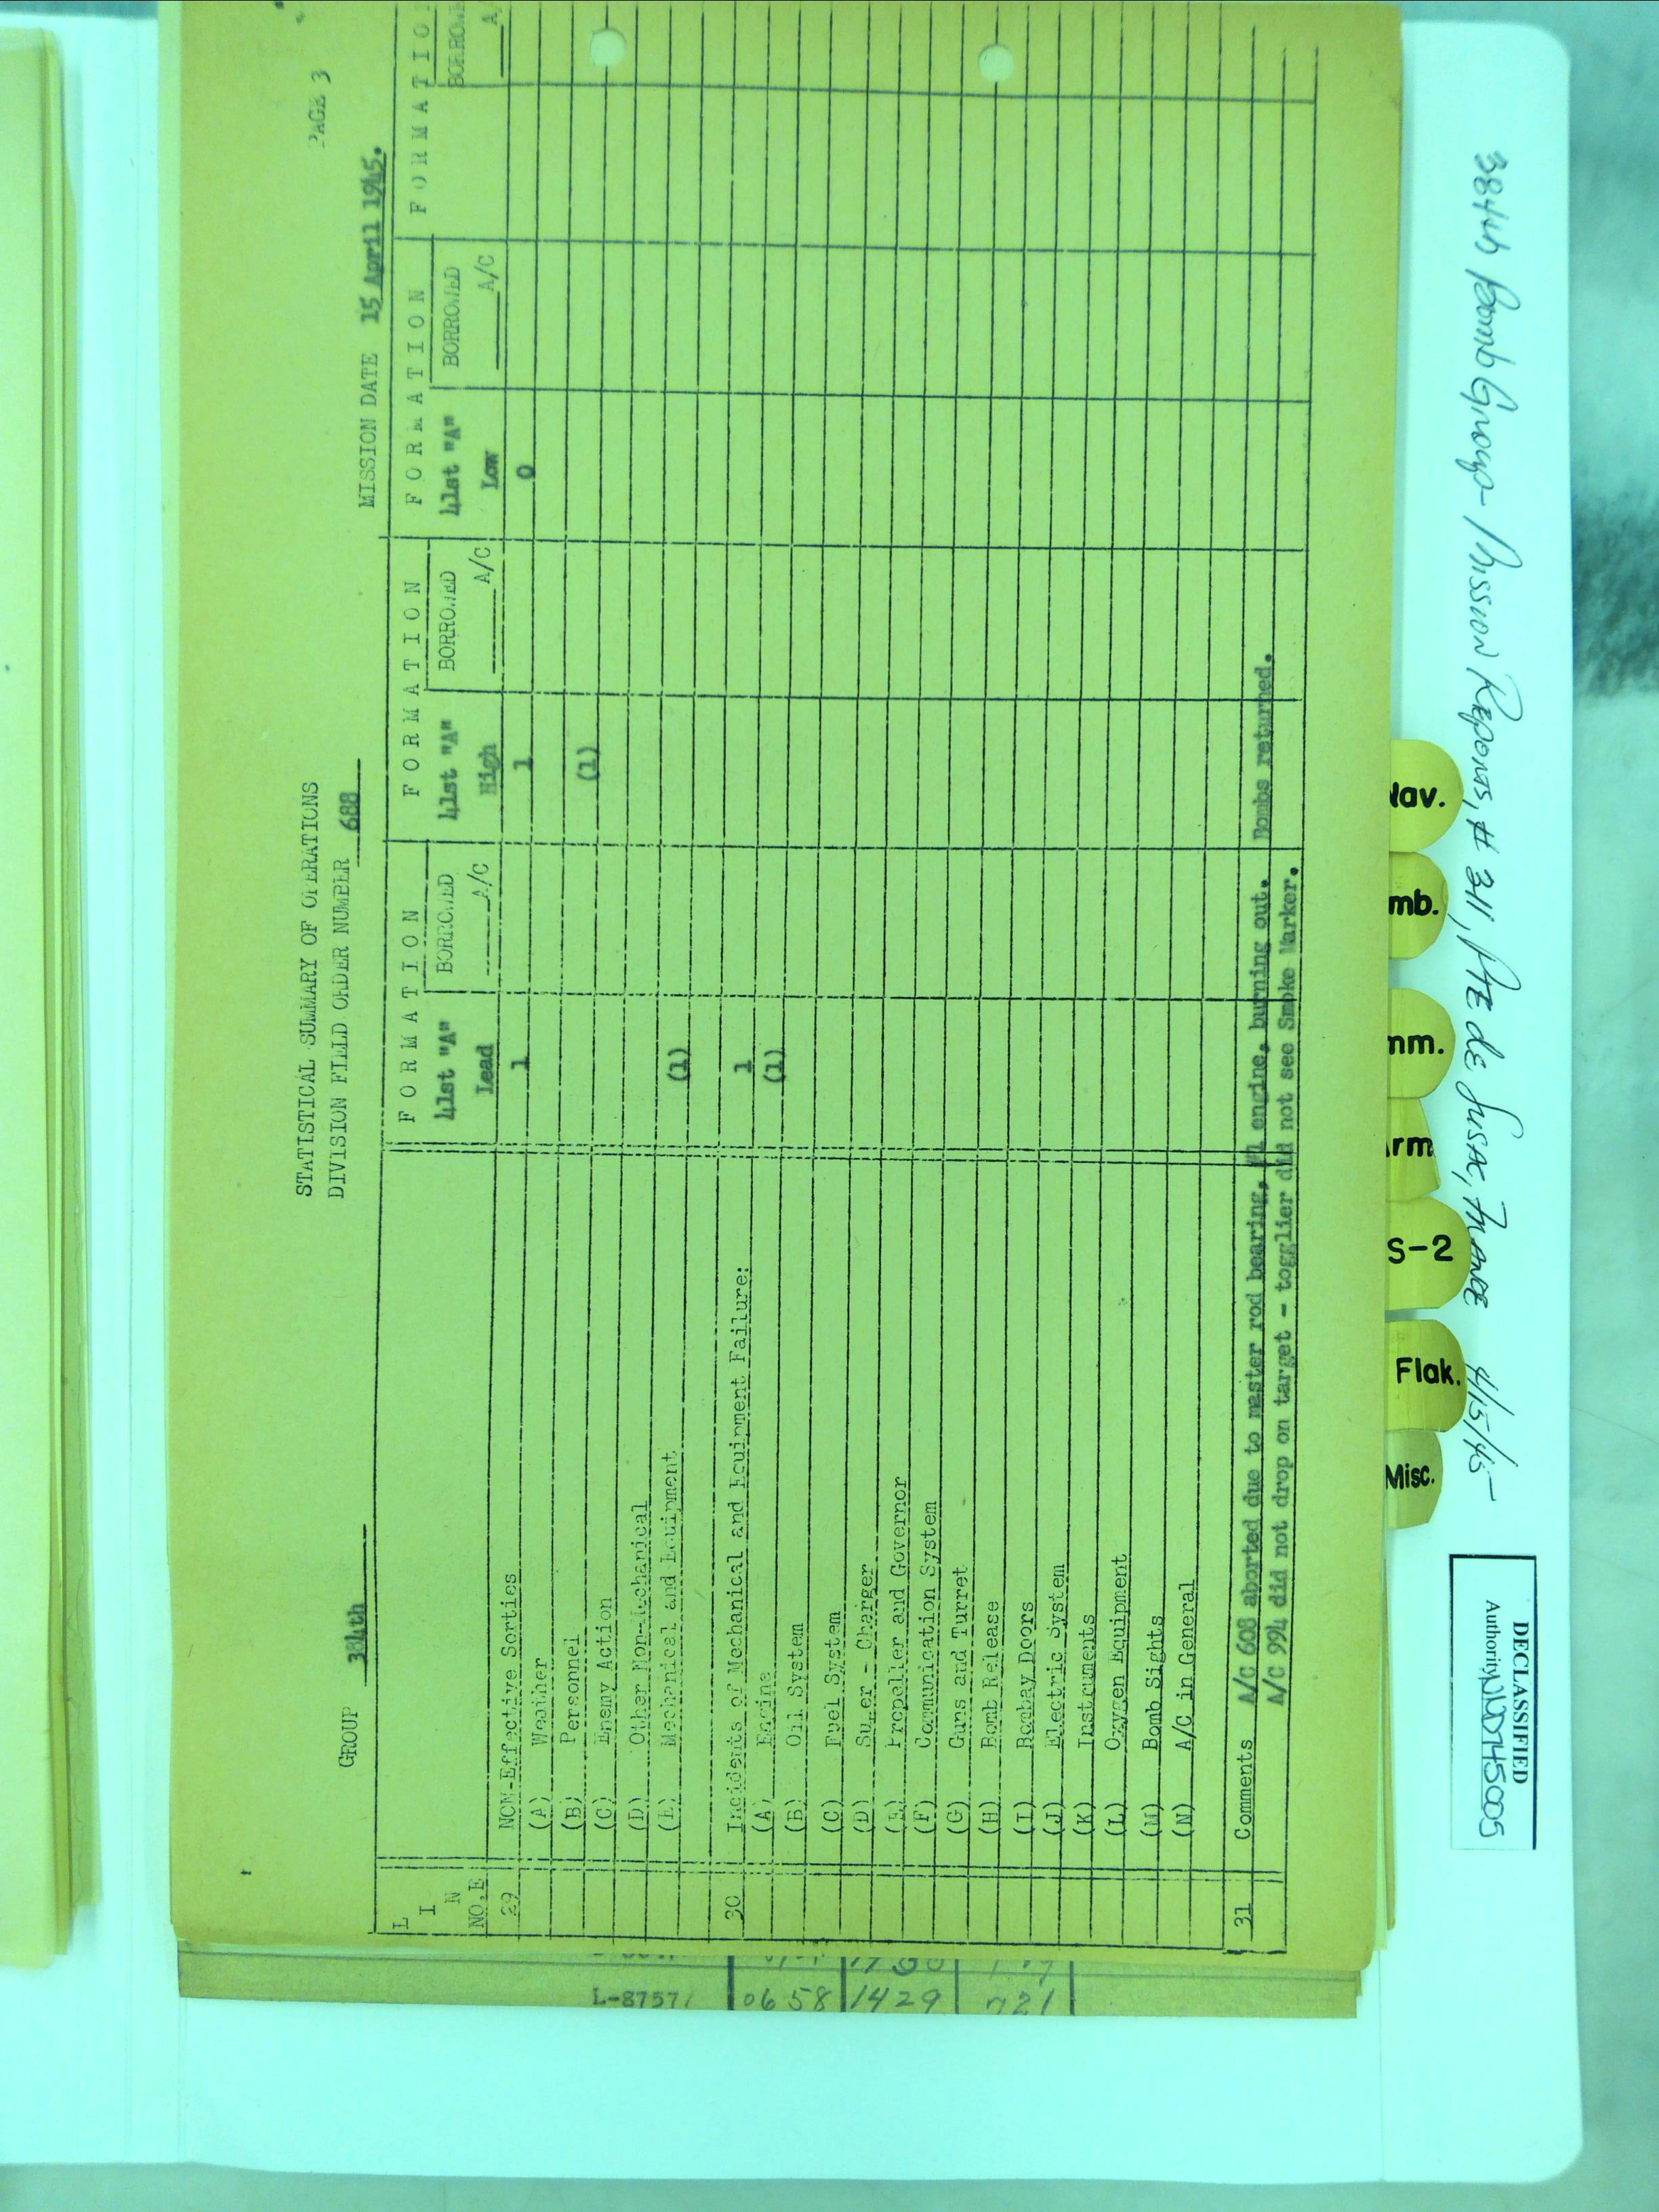 PAGE 3
STATISTICAL SUMMARY OF OPERATIONS
DIVISION FIELD ORDER NUMBER 688
GROUP 384th
MISSION DATE 15 April 1945.
L I N NO.E
FORMATION FORMATION FORMATION FORMATIO
41st "A" Lead BORROWED A/C
41st "A" High BORROWED A/C
41st "A" Low BORROWED A/C
BORROWE A/
29 NON-Effective Sorties 1 1 0
(A) Weather
(B) Personnel (1)
(C) Enemy Action
(D) Other Non-Mechanical
(E) Mechanical and Equipment (1)
30 Incidents of Mechanical and Equipment Failure: 1
(A) Engine (1)
(B) Oil System
(C) Fuel System
(D) Super - Charger
(E) Propeller and Governor
(F) Communication System
(G) Guns and Turret
(H) Bomb Release
(I) Bombay Doors
(J) Electric System
(K) Instruments
(L) Oxygen Equipment
(M) Bomb Sights
(N) A/C in General
31 Comments A/C 608 aborted due to master rod bearing, #1 engine, burning out. Bombs returned.
A/C 994 did not drop on target - togglier did not see Smoke Marker.
L-87571 0658 1429 721
Nav.
mb.
mm.
rm
S-2
Flak.
Misc.
384th Bomb Group - Mission Reports, # 311, Pte de Susac, France 4/15/45
DECLASSIFIED
Authority NND745005